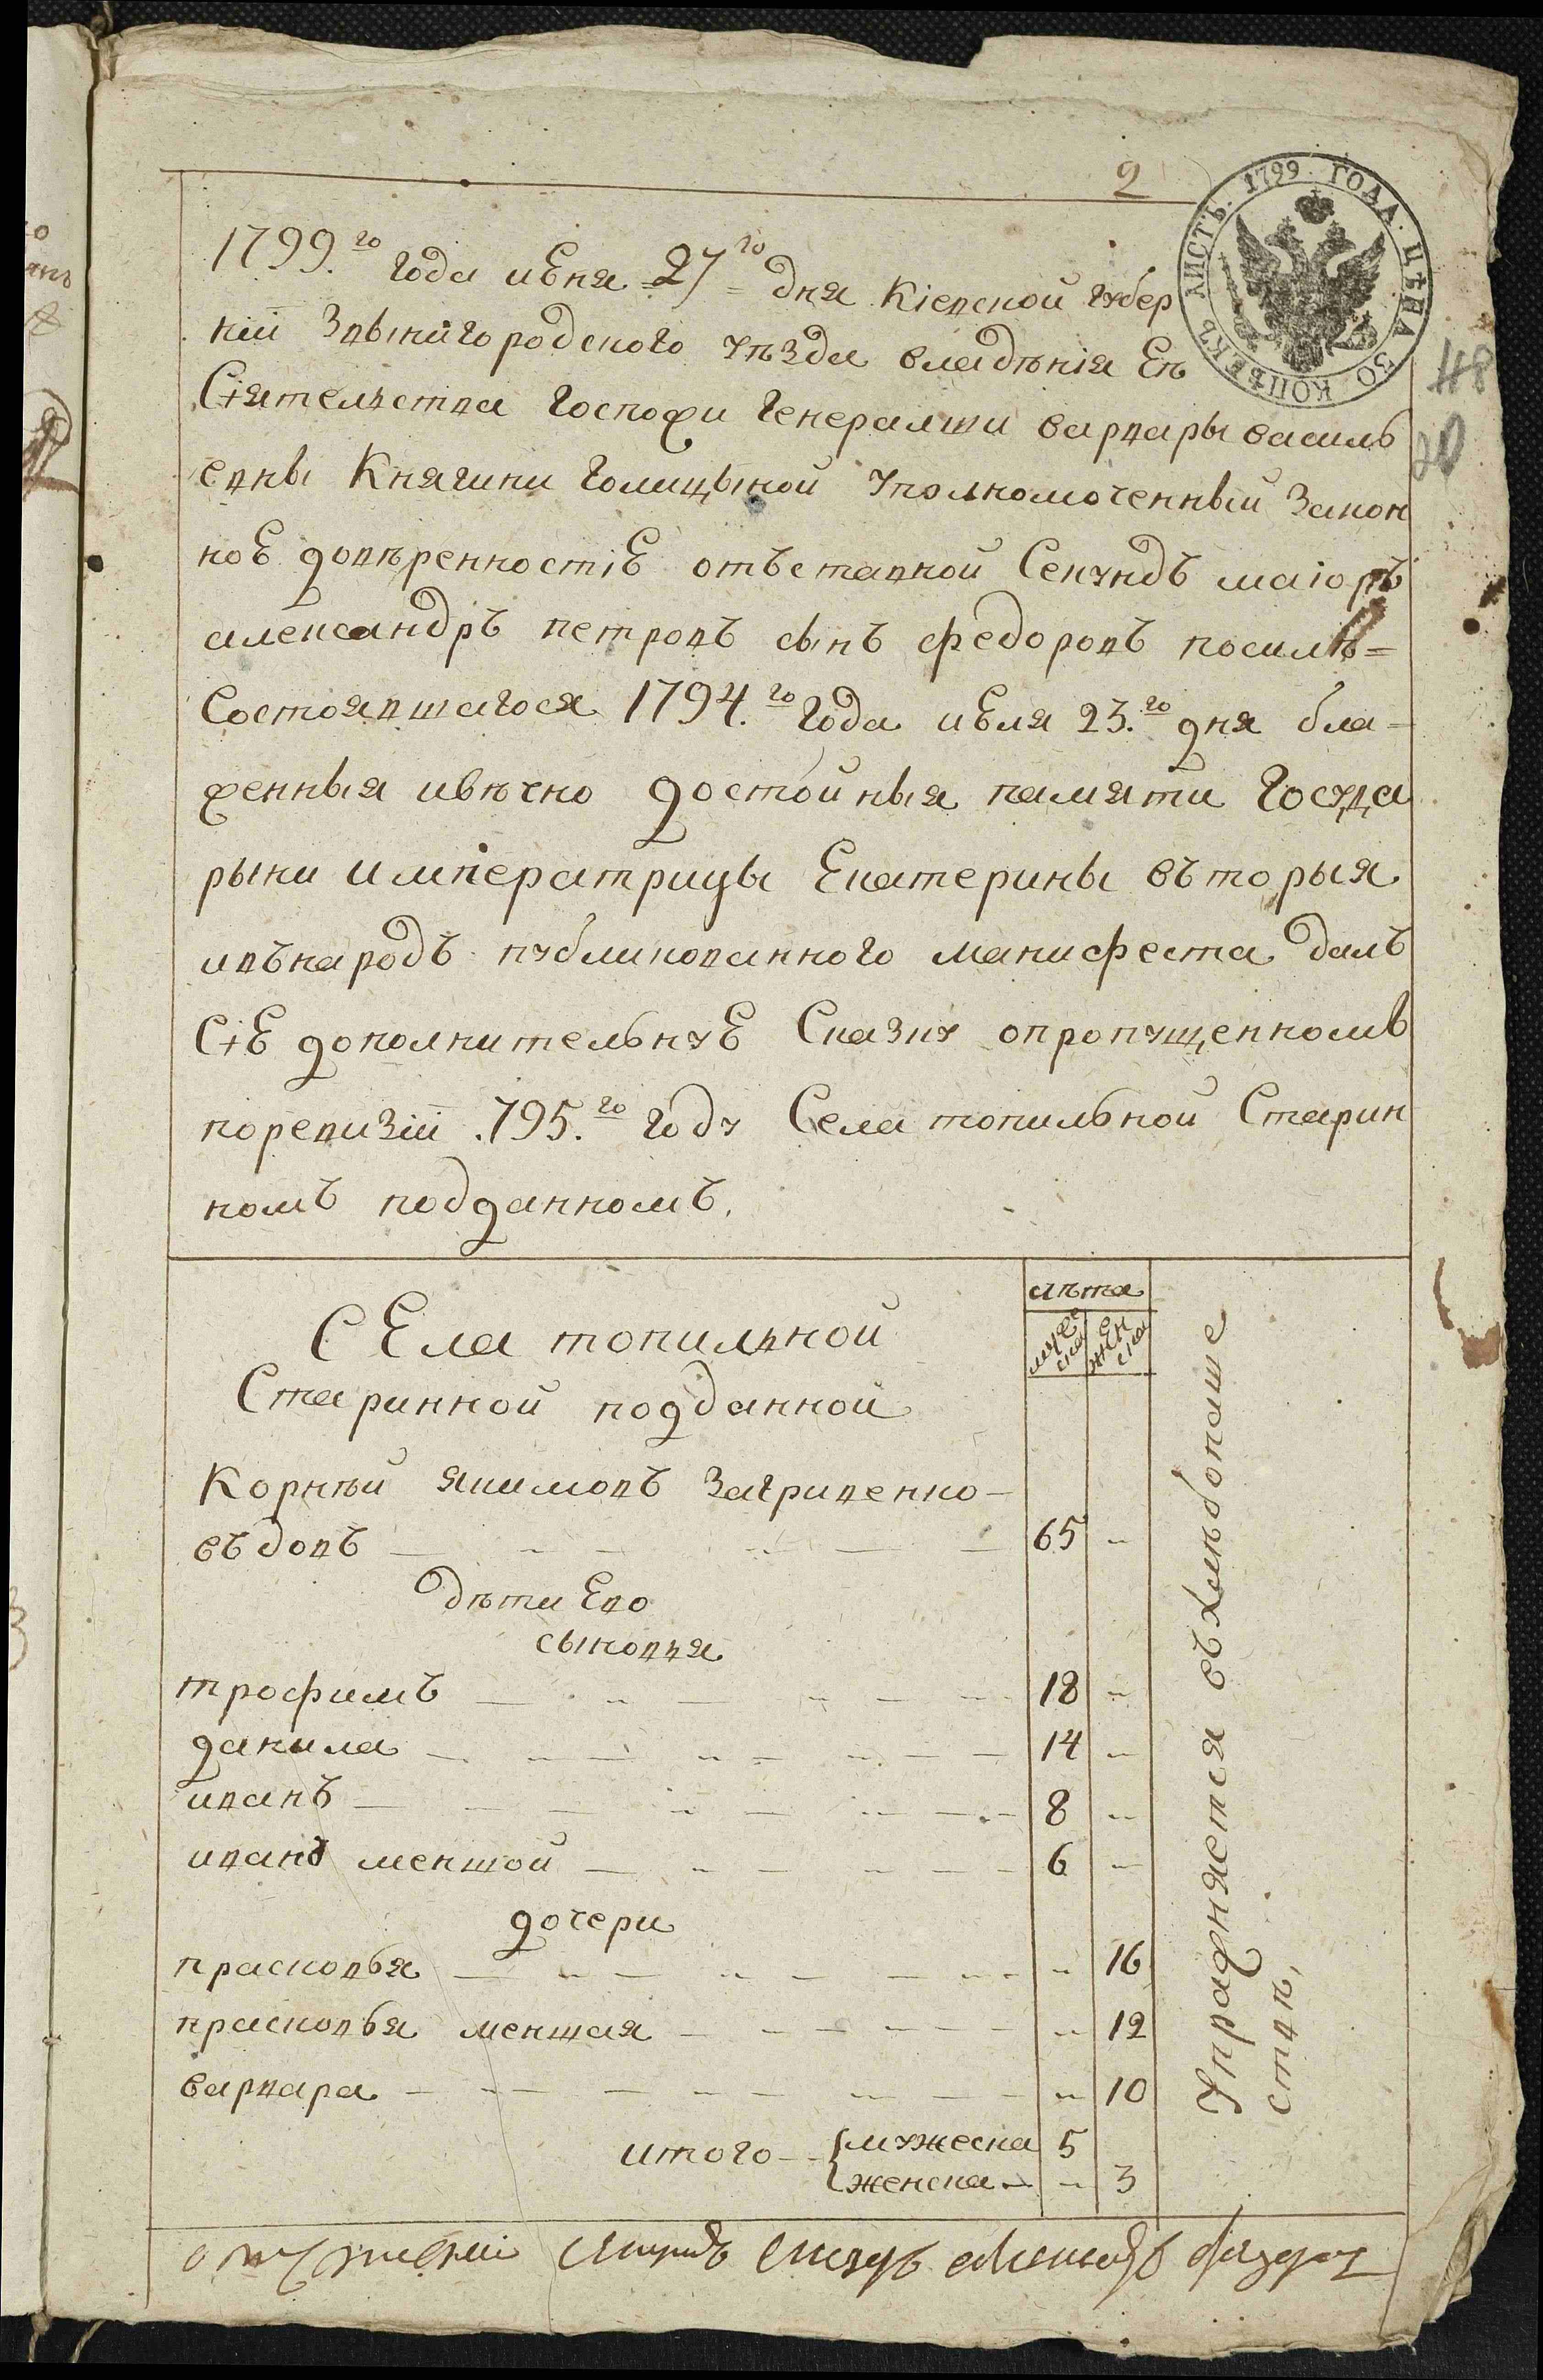 2
ЛИСТЪ. 1799. ГОДА. ЦѢНА 30 КОПѢЕКЪ
48
20
1799.го года июня 27го дня Кіевской губер
ніи Звынигородского уѣзда владѣнія Еѣ
Сіятелства Госпожи Генералши варвары василь
евны Княгини Голицыной уполномоченный Закон
ное довѣренностію отъставной Секундъ маіоръ
александръ петровъ сынъ федоровъ посилѣ=
Состоявшагося 1794.го года июля 23.го дня бла-
женныя ивѣчно достойныя памяти Госуда
рыни императрицы Екатерины въторыя
ивънародъ публикованного манифеста далъ
Сію дополнительную Сказку опропущенномъ
поревизіи .795.го году Села топильной Старин
номъ подданномъ.
СЕла топилной
Старинной подданной
лѣта
мужеска
женска
Корнѣй якимовъ Загриценко-
въдовъ 65
дѣти Ево
сыновья
трофимъ 18
данила 14
иванъ 8
иванъ меншой 6
дочери
прасковья 16
прасковья меншая 12
варвара 10
итого мужеска 5
женска 3
упражняется въхлѣбопаше
ствѣ,